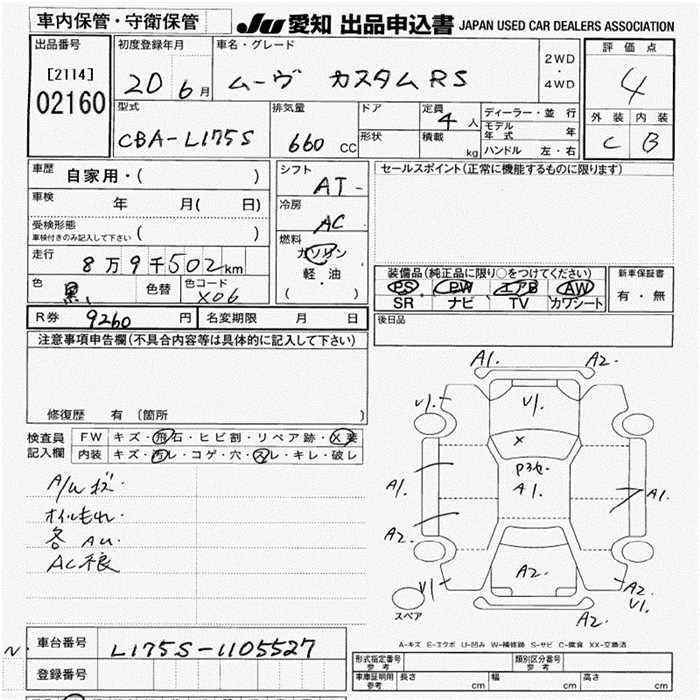 車内保管・守衛保管 JU 愛知 出品申込書 JAPAN USED CAR DEALERS ASSOCIATION
出品番号 初度登録年月 車名・グレード 評価点
[2114] 20 6月 ムーヴ カスタムRS 2WD・4WD 4
02160 型式 排気量 ドア 定員 4人 ディーラー・並行 外装 内装
CBA-L175S 660 CC 形状 積載 kg モデル年式 年 C B
ハンドル 左・右
車歴 自家用・( ) シフト AT- セールスポイント(正常に機能するものに限ります)
車検 年 月( 日) 冷房 AC
受検形態 ( )
車検付きのみ記入して下さい
燃料 ガソリン
走行 8万9千502km 軽・油 装備品(純正品に限り○をつけてください) 新車保証書
色 黒 色替 色コード X06 ( ) PS PW エアB AW 有・無
SR ナビ TV カワシート
R券 9260 円 名変期限 月 日 後日品
注意事項申告欄(不具合内容等は具体的に記入して下さい)
修復歴 有 (箇所 )
検査員 FW キズ・飛石・ヒビ割・リペア跡・X要
記入欄 内装 キズ・汚レ・コゲ・穴・スレ・キレ・破レ
オイルもれ・
各 AU
AC不良
A1. A2.
V1. V1. V1.
X
A1.
A1. A1.
A2.
V1 A2. A2.
V1.
スペア
A2.
A-キズ E-エクボ U-凹み W-補修跡 S-サビ C-腐食 XX-交換済
車台番号 L175S-1105527
登録番号
型式指定番号 参考 類別区分番号 参考
車庫証明用 参考 長さ cm 幅 cm 高さ cm